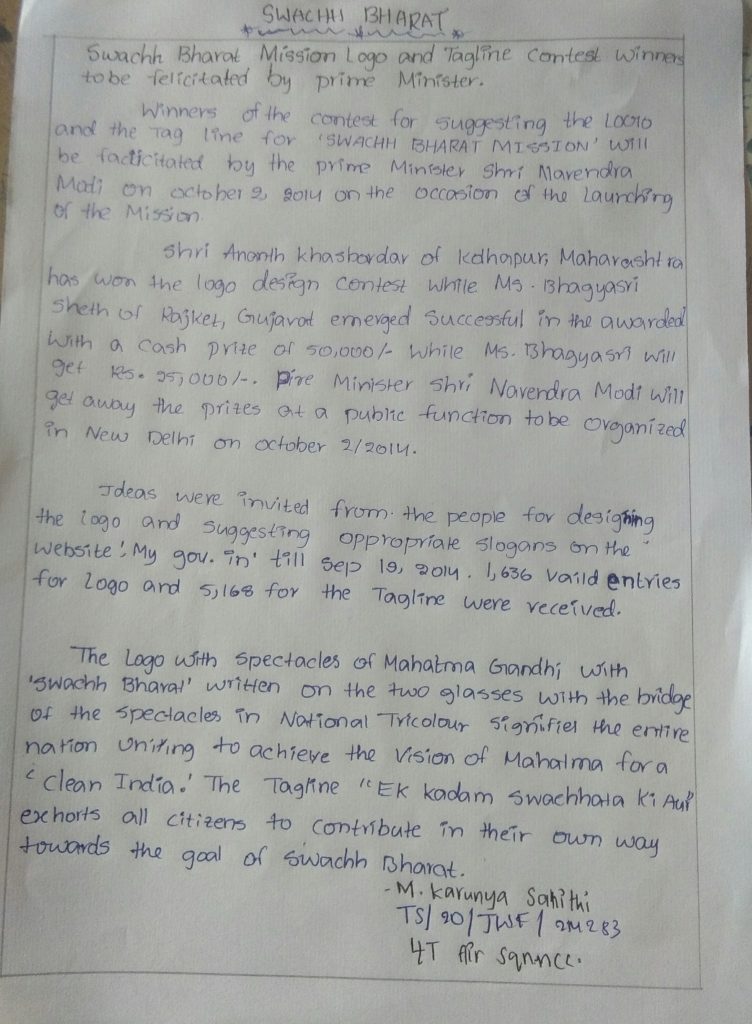 SWACHH BHARAT
Swachh Bharat Mission Logo and Tagline Contest winners
to be felicitated by prime Minister.
Winners of the contest for suggesting the LOGO
and the Tag line for 'SWACHH BHARAT MISSION' will
be facticitated by the prime Minister Shri Narendra
Modi on october 2, 2014 on the occasion of the launching
of the Mission
Shri Ananth khasbardar of kdhapur, Maharashtra
has won the logo design contest while Ms. Bhagyasri
Sheth of Rajket, Gujarat emerged successful in the awarded
with a cash prize of 50,000/- while Ms. Bhagyasri will
get Rs. 25,000/-. Pire Minister Shri Narendra Modi will
get away the prizes at a public function to be organized
in New Delhi on october 2/2014.
Ideas were invited from the people for designing
the logo and suggesting oppropriate slogans on the
website 'My gov. in' till Sep 19, 2014. 1,636 vaild entries
for logo and 5,168 for the Tagline were received.
The Logo with spectacles of Mahatma Gandhi with
'swachh Bharat' written on the two glasses with the bridge
of the spectacles in National Tricolour signifies the entire
nation Uniting to achieve the vision of Mahatma for a
'clean India.' The Tagline "EK kadam swachhata ki Aur"
exhorts all citizens to contribute in their own way
towards the goal of swachh Bharat.
- M. karunya Sahithi
TS/20/JWF/2M283
4T Air